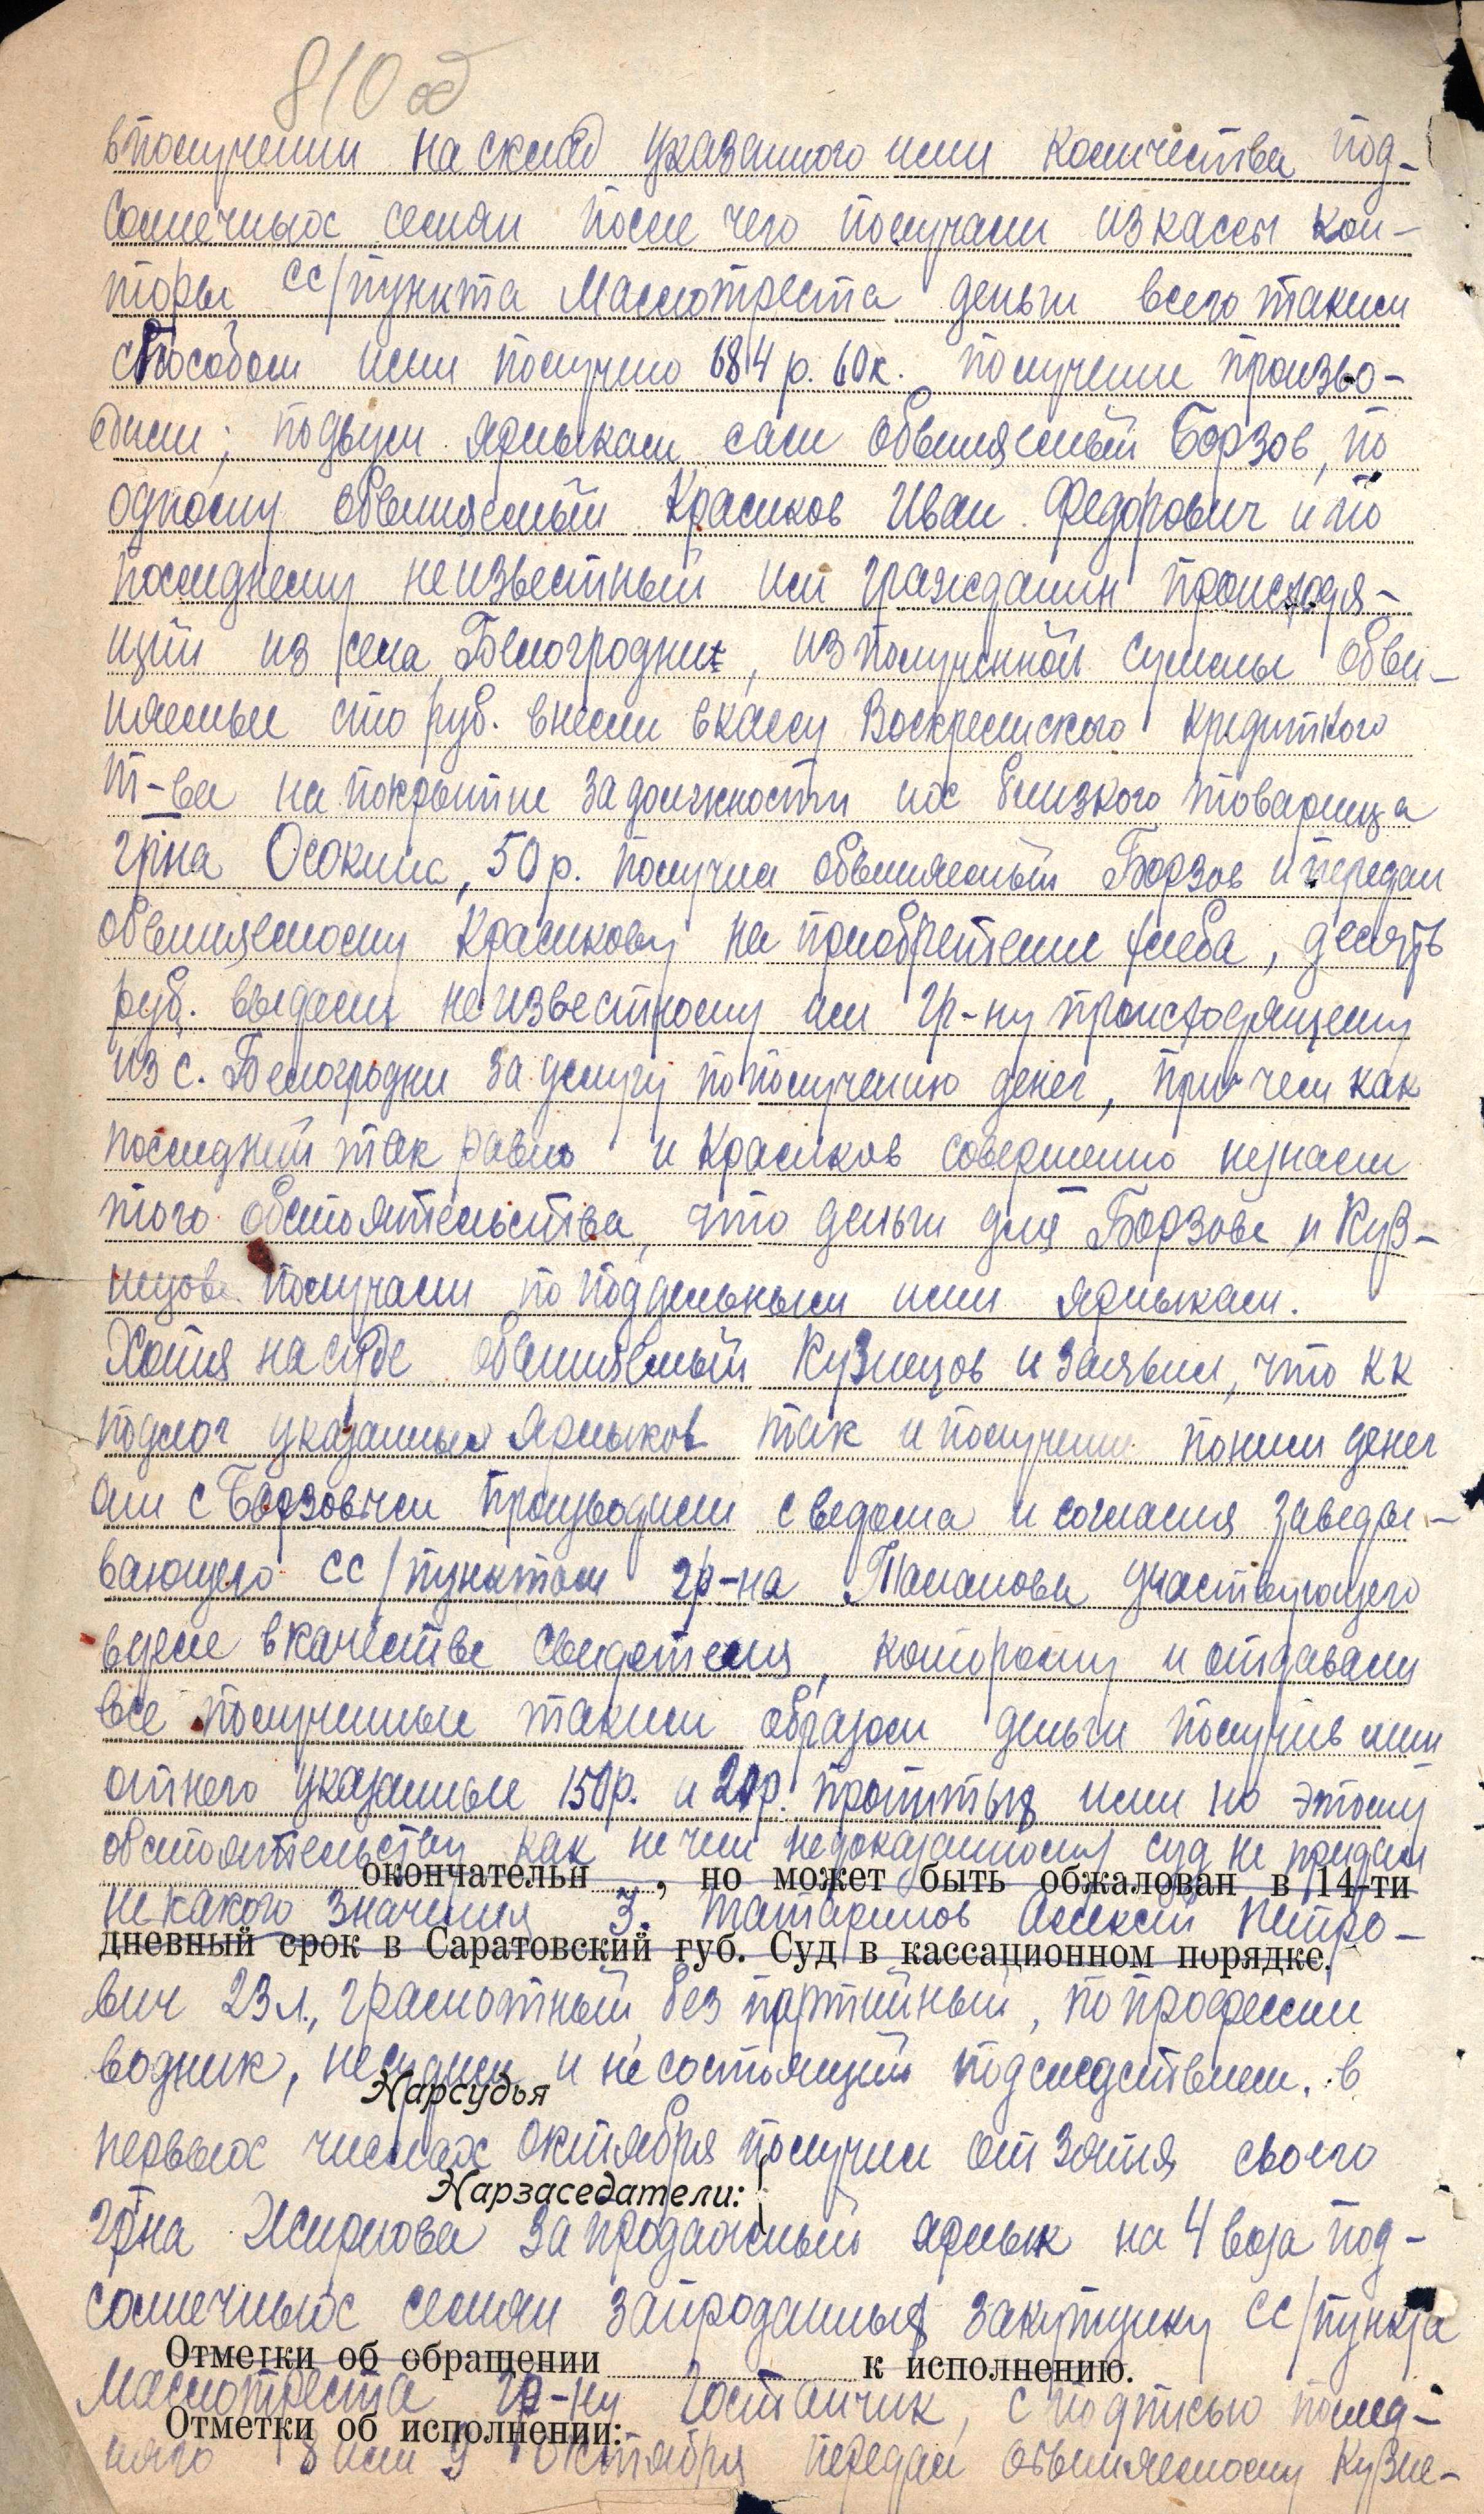 810 об
в получении на склад указанного ими количества под-
солнечных семян после чего получали из кассы кон-
торы сс/пункта Маслотреста деньги всего таким
способом ими получено 684 р. 60 к. получение произво-
дили; по двум ярлыкам сам обвиняемый Борзов, по
одному обвиняемый Красиков Иван Федорович и по
последнему неизвестный им гражданин происходя-
щий из села Белогродни, из полученной суммы обви-
няемые сто руб. внесли в кассу Воскресенского кредитного
т-ва на покрытие задолжности их близкого товарища
гр-на Осокина, 50 р. получил обвиняемый Борзов и передал
обвиняемому Красикову на приобретение хлеба, десять
руб. выдали неизвестному им гр-ну происходящему
из с. Белогродни за услугу по получению денег, при чем как
последний так равно и Красиков совершенно незнали
того обстоятельства, что деньги для Борзова и Куз-
нецова получали по поддельным ими ярлыкам.
Хотя на суде обвиняемый Кузнецов и заявил, что кк
подлог указанных ярлыков так и получение по ним денег
они с Борзовым производили с ведома и согласия заведы-
вающего сс/пунктом гр-на участвующего
в деле в качестве свидетеля, которому и отдавали
все полученные таким образом деньги получив лиш
от него указанные 150 р. и 20 р. ими но этому
обстоятельству как не чем недоказанному суд не придал
окончательн , но может быть обжалован в 14-ти
не какого значения 3. Татаринов Алексей Петро-
дневный срок в Саратовский губ. Суд в кассационном порядке.
вич 23 л., грамотный, без партийный, по профессии
водник, несудим и не состоящий под следствием. в
Нарсудья
первых числах октября получил от зятя своего
Нарзаседатели:
гр-на Жирнова запродажный ярлык на 4 воза под-
солнечных семян запроданных закупщику сс/пункта
Отметки об обращении к исполнению.
Маслотреста гр-ну Гостанчик, с подписью послед-
Отметки об исполнении:
няго 8 или 9 октября передал обвиняемому Кузне-